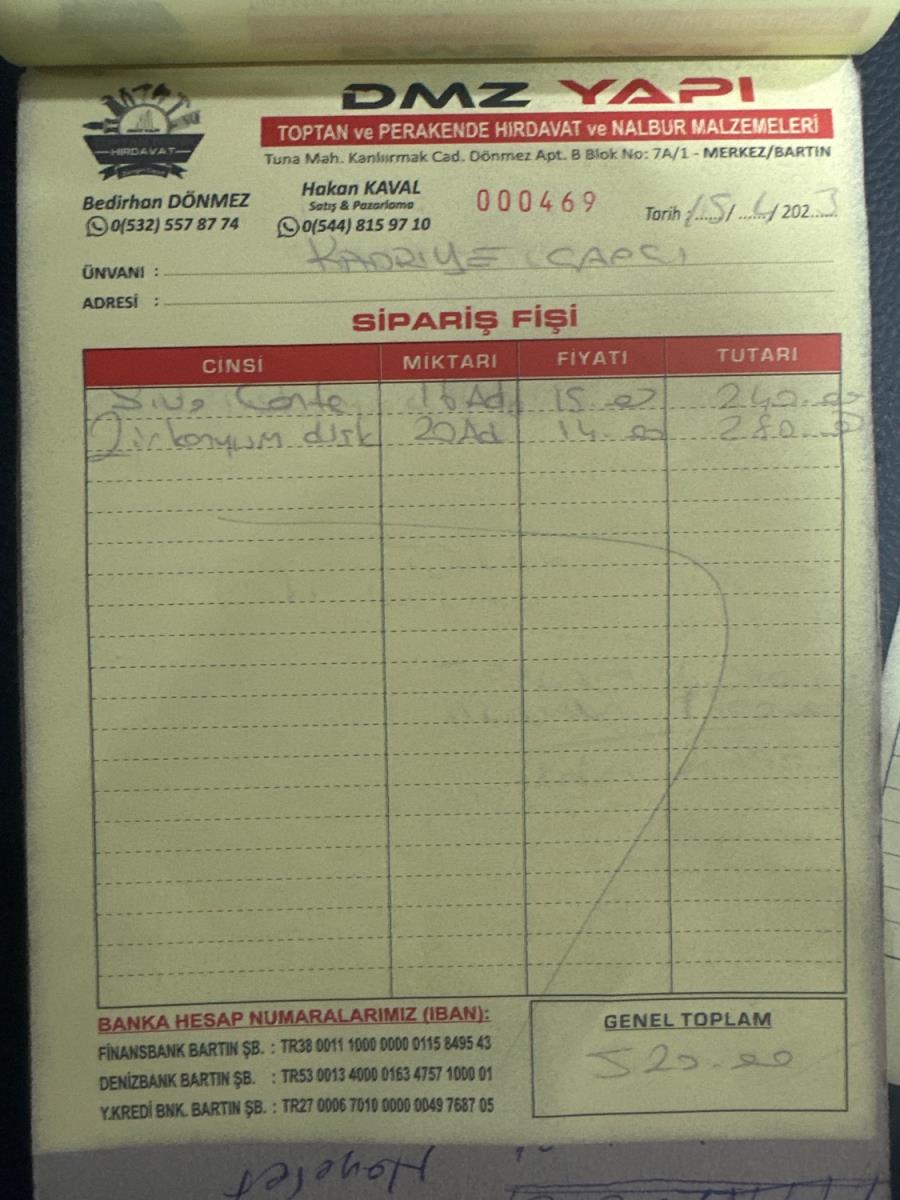 DMZ YAPI
HIRDAVAT
TOPTAN ve PERAKENDE HIRDAVAT ve NALBUR MALZEMELERİ
Tuna Mah. Kanlıırmak Cad. Dönmez Apt. B Blok No: 7A/1 - MERKEZ/BARTIN
Bedirhan DÖNMEZ
0(532) 557 87 74
Hakan KAVAL
Satış & Pazarlama
0(544) 815 97 10
000469
Tarih : 15 / 4 / 2023
ÜNVANI : KADRİYE
ADRESİ :
SİPARİŞ FİŞİ
CİNSİ MİKTARI FİYATI TUTARI
16 Ad. 15.00 240.00
Zirkonyum disk 20 Ad 14.00 280.00
BANKA HESAP NUMARALARIMIZ (IBAN):
FİNANSBANK BARTIN ŞB. : TR38 0011 1000 0000 0115 8495 43
DENİZBANK BARTIN ŞB. : TR53 0013 4000 0163 4757 1000 01
Y.KREDİ BNK. BARTIN ŞB. : TR27 0006 7010 0000 0049 7687 05
GENEL TOPLAM
520.00